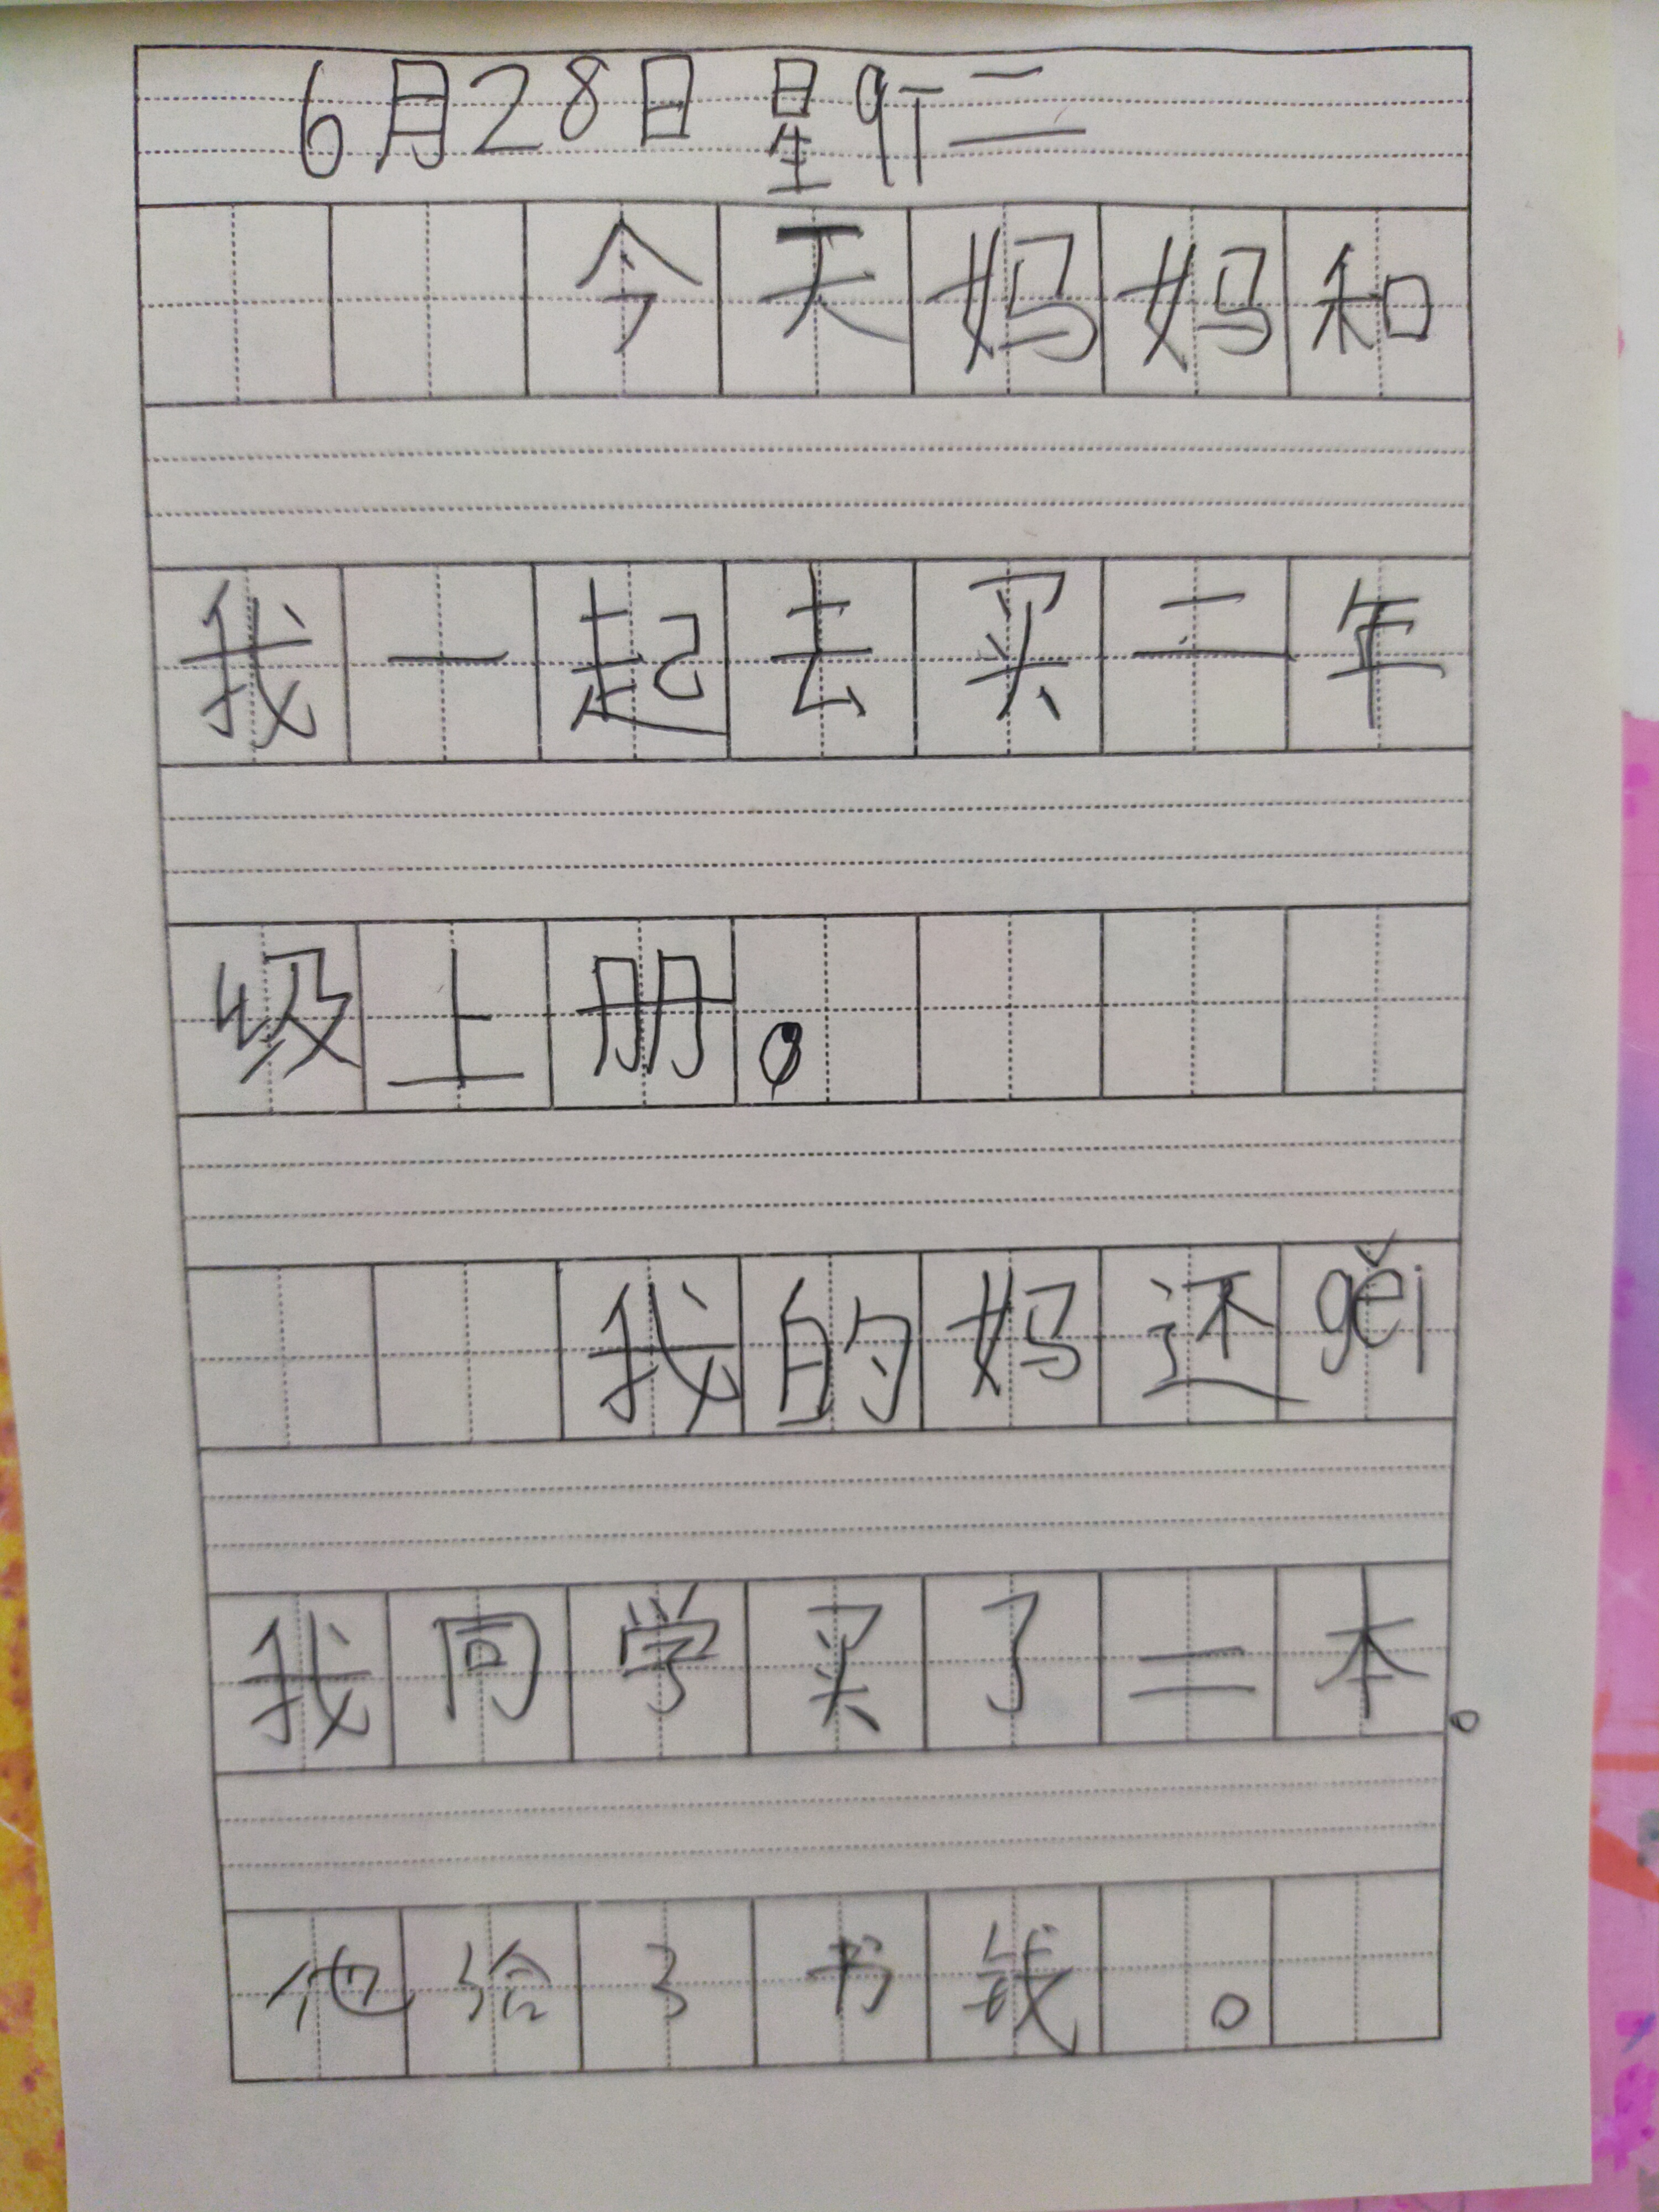 6月28日 星qī二
今天妈妈和
我一起去买二年
级上册。
我的妈还gěi
我同学买了二本。
他给了书钱。